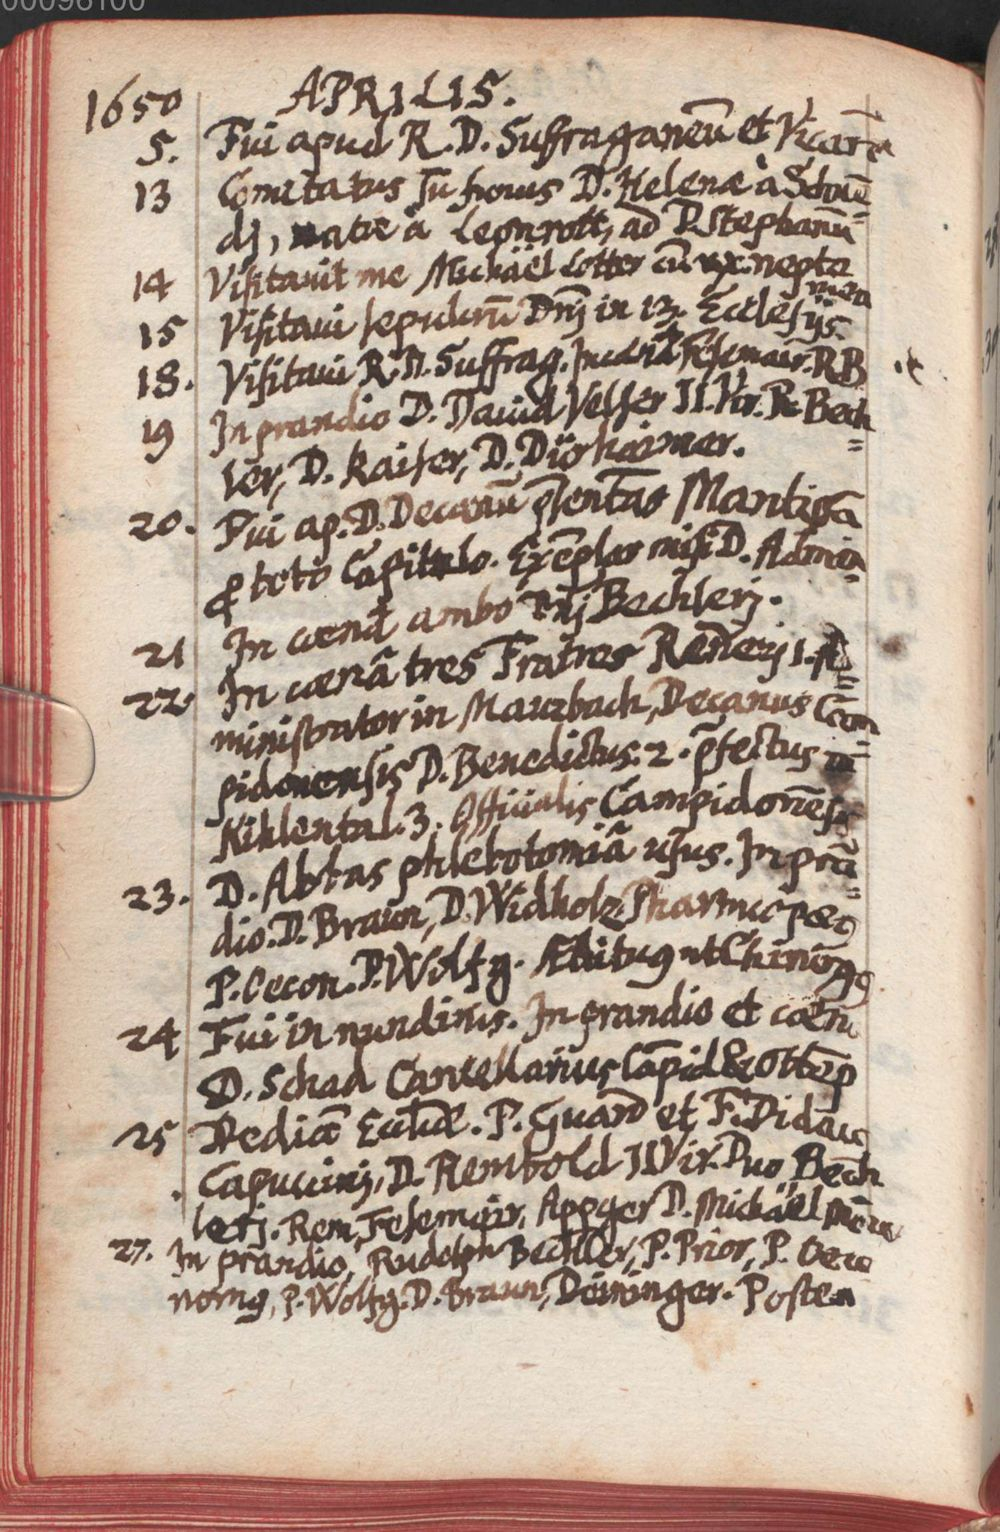 00096100
1650 APRILIS.
5. Fui apud R.D. Suffraganeū et Vicariū
13 Comitatus sū funus D. Helenæ à Schöne=
dj, natæ à Leonrott, ad D. Stephanū
14 Visitauit me Michäel Cotter cū ux. nepte
mea
15 Visitaui sepulcrū Dnj in 13. Ecclesijs
18. Visitaui R.D. Suffrag. R.P.
19 In prandio D. Dauid Velser II.Vir. Bech=
ler, D. Kaiser, D. Dürheimer.
20. Fui ap. D. Decanū p̄sentās Mantissā
ꝓ toto Capitulo. Exēplar misi D. Admin.
21 In cœnâ ambo Bechlerj.
22 In cœnâ tres Fratres 1. Ad=
ministrator in Mauzbach, Decanus Cam=
pidonensis D. Benedictus. 2. p̄fectus in
Kiklental. 3. Officialis Campidonēsis
23. D. Abbas phlebotomiâ usus. In prā=
dio. D. Braun, D. Widholz Pharmacopœ9
P. Oecon. P. Wolfg. Æditu9 ut Chirurg9
24 Fui in nundinis. In prandio et cœna
D. Schad Cancellarius Cāpid. & Ottop
25 P. Guard et F. Didac9
Capucinj, D. Rembold II Vir. Duo Bech
lerj. Rem, Fesemair, Appger D. Michäel
27. In prandio, Rudolph Bechler, P. Prior, P. Oeco
nom9, P. Wolfg. D. Braun, Deininger. Postea